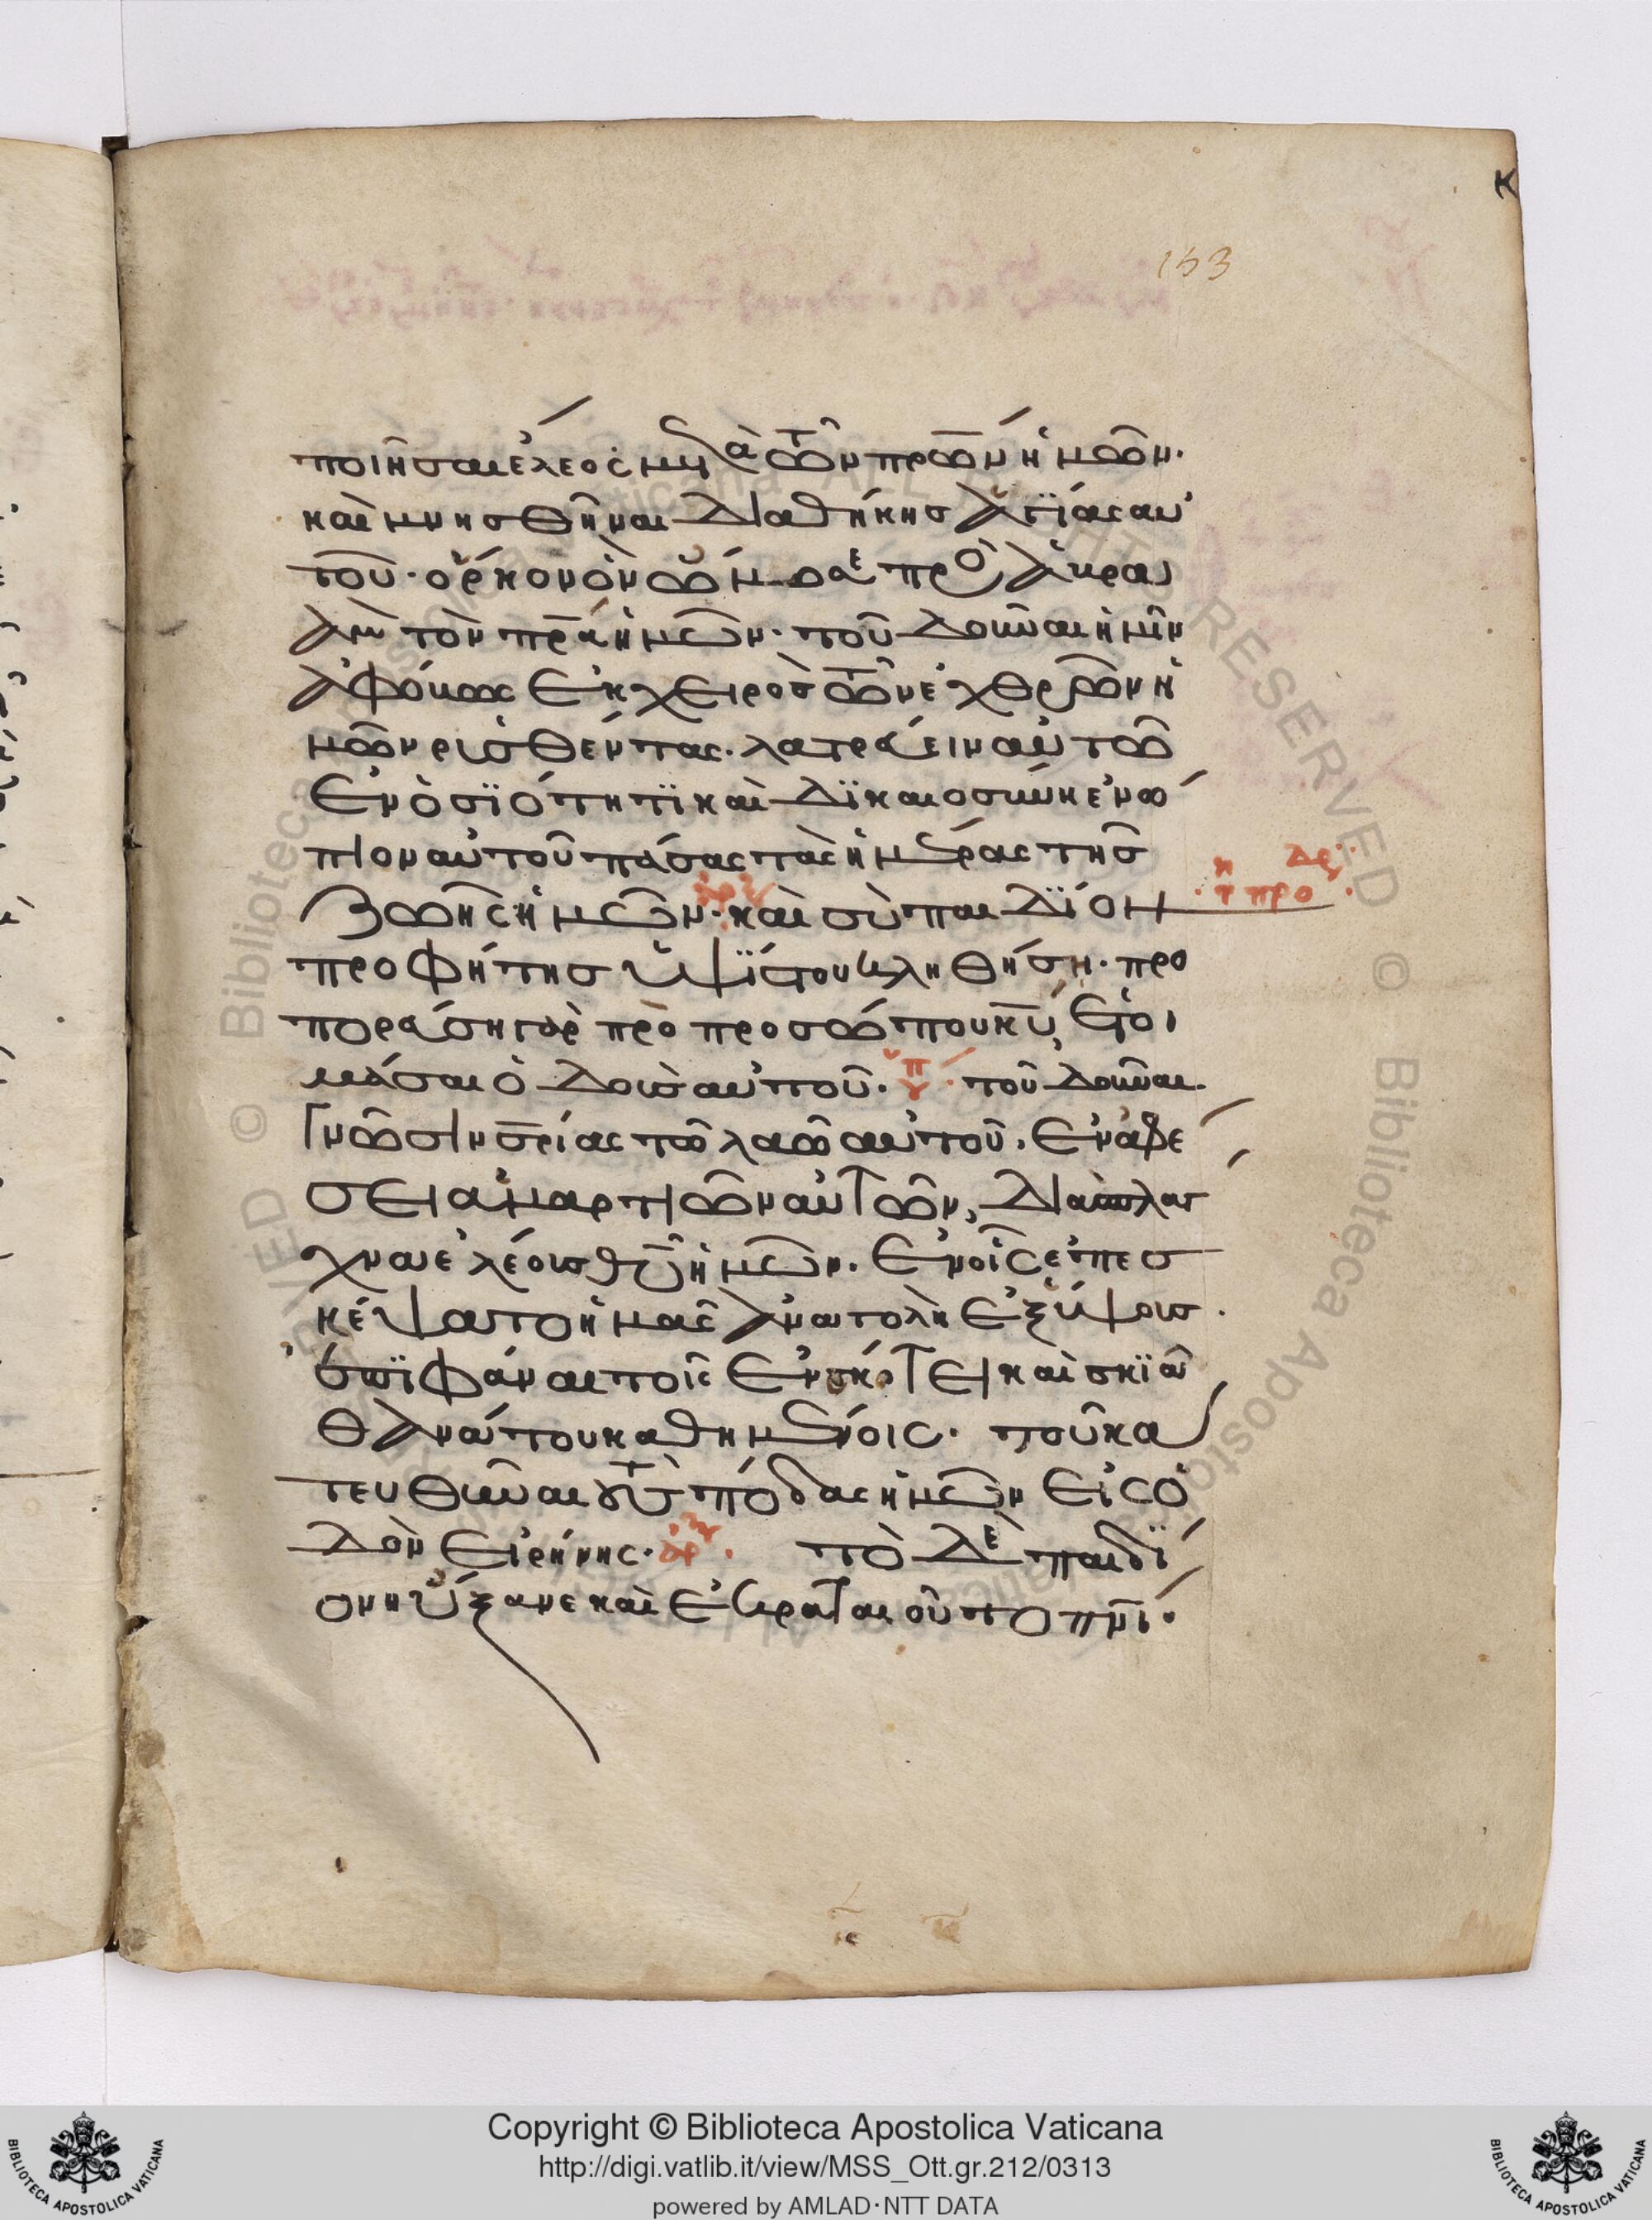 153
ποιῆσαι ἔλεος μετὰ τῶν πρων ἡμῶν·
καὶ μνησθῆναι διαθήκης ἁγίας αὐ
τοῦ· ὅρκον ὃν ὤμοσε πρὸς ἀβραὰμ
τὸν πρα ἡμῶν· τοῦ δοῦναι ἡμῖν
ἀφόβως ἐκ χειρὸς τῶν ἐχθρῶν ἡ
μῶν ρισθέντας· λατρεύειν αὐτῶ
ἐν ὁσϊότητϊ καὶ δϊκαιοσύνη ἐνώ
πιον αὐτοῦ πάσας τὰς ἡμέρας τῆς
ζωῆς ἡμῶν· καὶ σὺ παιδΐον
προφήτης ὑψΐστου κληθήση· προ
πορεύση γὰρ πρὸ προσώπου κυ ἑτοι
μάσαι ὁδοὺς αὐτοῦ· τοῦ δοῦναι·
γνῶσιν σρίας τῶ λαῶ αὐτοῦ· ἐν ἀφέ
σει ἁμαρτιῶν αὐτῶν, διὰ σπλάγ
χνα ἐλέους θυ ἡμῶν· ἐν οἷς ἐπεσ
κέψατο ἡμᾶς ἀνατολὴ ἐξ ὕψους·
ἐπϊφάναι τοῖς ἐν σκότει καὶ σκϊᾶ
θανάτου καθημένοις· τοῦ κα
τευθῦναι τοὺς πόδας ἡμῶν εἰς ὁ
δὸν εἰρήνης· τὸ δὲ παιδΐ
ον ηὔξανε καὶ ἐκραταιοῦτο πνι·
Copyright © Biblioteca Apostolica Vaticana
http://digi.vatlib.it/view/MSS_Ott.gr.212/0313
powered by AMLAD·NTT DATA
BIBLIOTECA APOSTOLICA VATICANA
BIBLIOTECA APOSTOLICA VATICANA